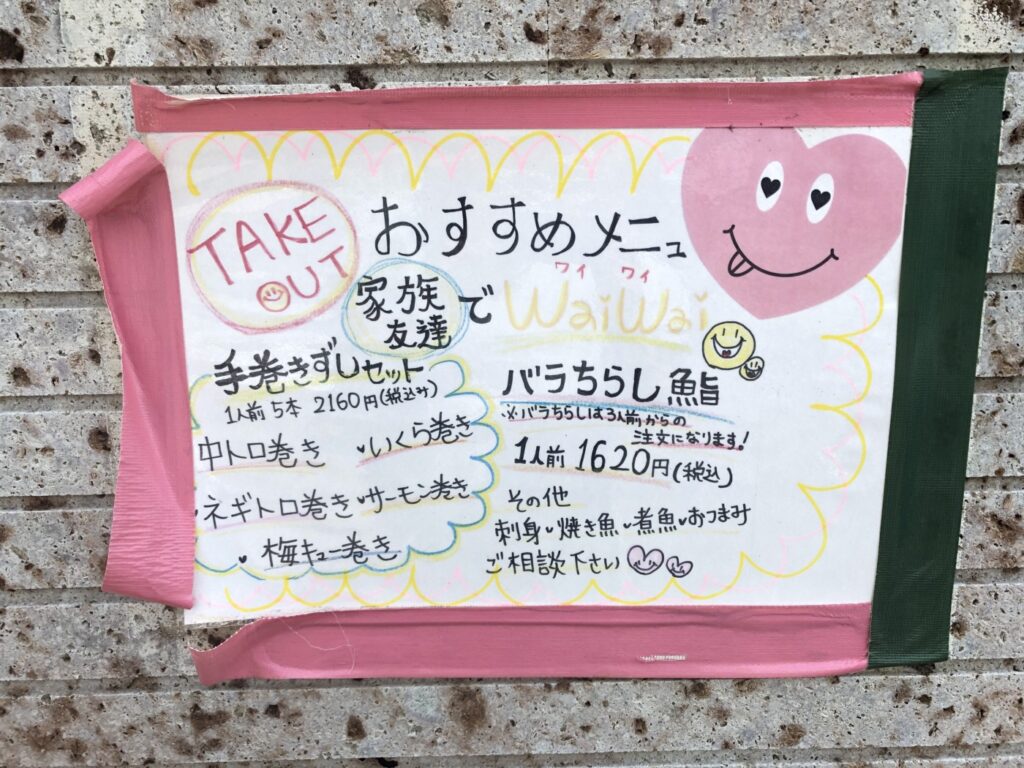 TAKE
OUT
おすすめメニュー
家族
友達
で
ワイ ワイ
WaiWai
手巻きずしセット
1人前5本 2160円(税込み)
中トロ巻き
いくら巻き
ネギトロ巻き
サーモン巻き
梅キュー巻き
バラちらし鮨
※バラちらしは3人前からの
注文になります!
1人前 1620円(税込)
その他
刺身 焼き魚 煮魚 おつまみ
ご相談下さい